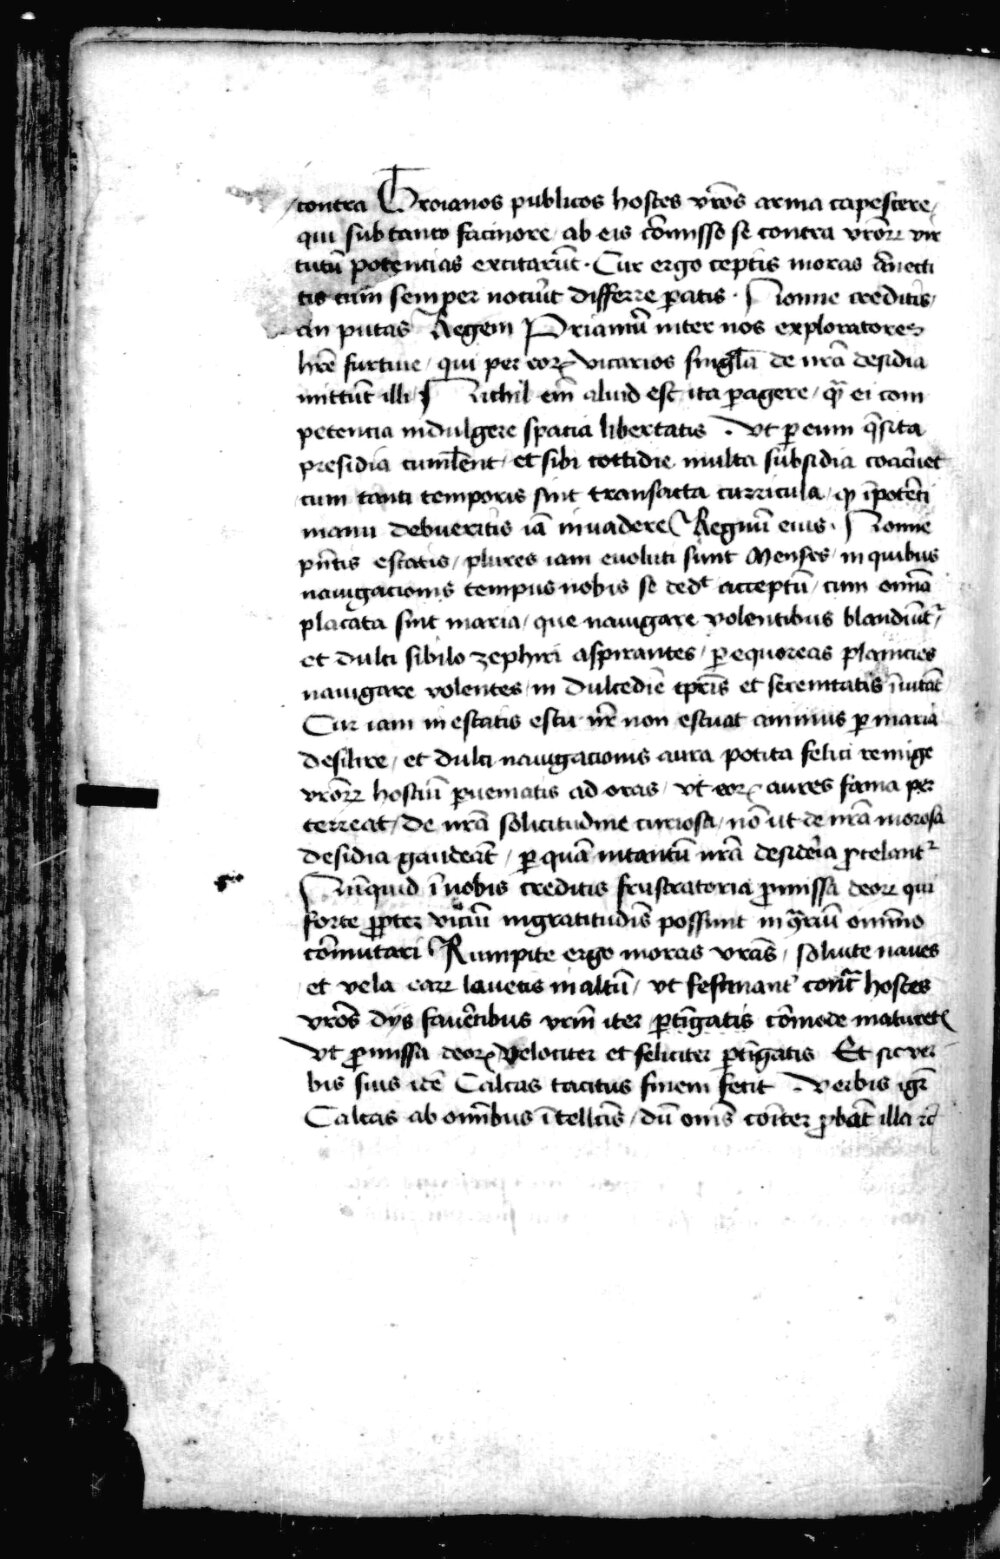 contra Troianos publicos hostes vr̄os arma capescere /
qui sub tanto facinore / ab eis cōmisso se contra vr̄oꝝ vir
tutū potencias excitarūt · Cur ergo ceptis moras
tis cum semper nocuit differre ꝑatis · Nonne creditis /
an putas Regem Priamū inter nos exploratores
hr̄e furtiue / qui per eoꝝ vicarios singl̄a de nr̄a desidia
mittūt illi / Nichil em̄ aliud est ita ꝑagere / qͣ ei com
petencia indulgere spacia libertatis · vt ꝑ eum q̄sita
presidia cumlent / et sibi cottidie multa subsidia
cum tanti temporis sint transacta curricula / ꝙ īpotēti
manu debueritis iā inuadere Regnū eius · Nonne
pn̄tis estatis / plures iam euoluti sunt Menses / in quibus
nauigacionis tempus nobis se ded̄t acceptū / cum om̄ia
placata sint maria / que nauigare volentibus blandiūtᷣ /
et dulci sibilo zephiri aspirantes / ꝑ equoreas planicies
nauigare volentes / in dulcedīe tꝑis et serenitatis īuitāt
Cur iam in estatis estu vr̄ non estuat animus ꝑ maria
desilire / et dulci nauigacionis aura potita felici remige
vr̄oꝝ hostiū ꝑueniatis ad oras / vt eoꝝ aures fama per
terreat / de nr̄a solicitudine curiosa / nō ut de nr̄a morosa
desidia gaudeāt / ꝑ quā intantū nr̄a desideria ꝓtelantᷣ
Nūquid ī vobis creditis frustratoria ꝓmissa deoꝝ qui
forte ꝓpter viciū ingratitudīs possunt in 9̄riū omnīo
cōmutari Rumpite ergo moras vr̄as / soluite naues
et vela eaꝝ leuetis in altū / vt festinant᾽ cont͛ hostes
vr̄os dijs fauētibus vrm̄ iter ꝑtīgatis cōmode maturetis
vt ꝓmissa deoꝝ velociter et feliciter ꝑtīgatis Et sic ver
bis suis idē Calcas tacitus finem fecit · verbis igr̄
Calcas ab omnībus ītellcīs / dū om̄s cōiter ꝓbāt illa